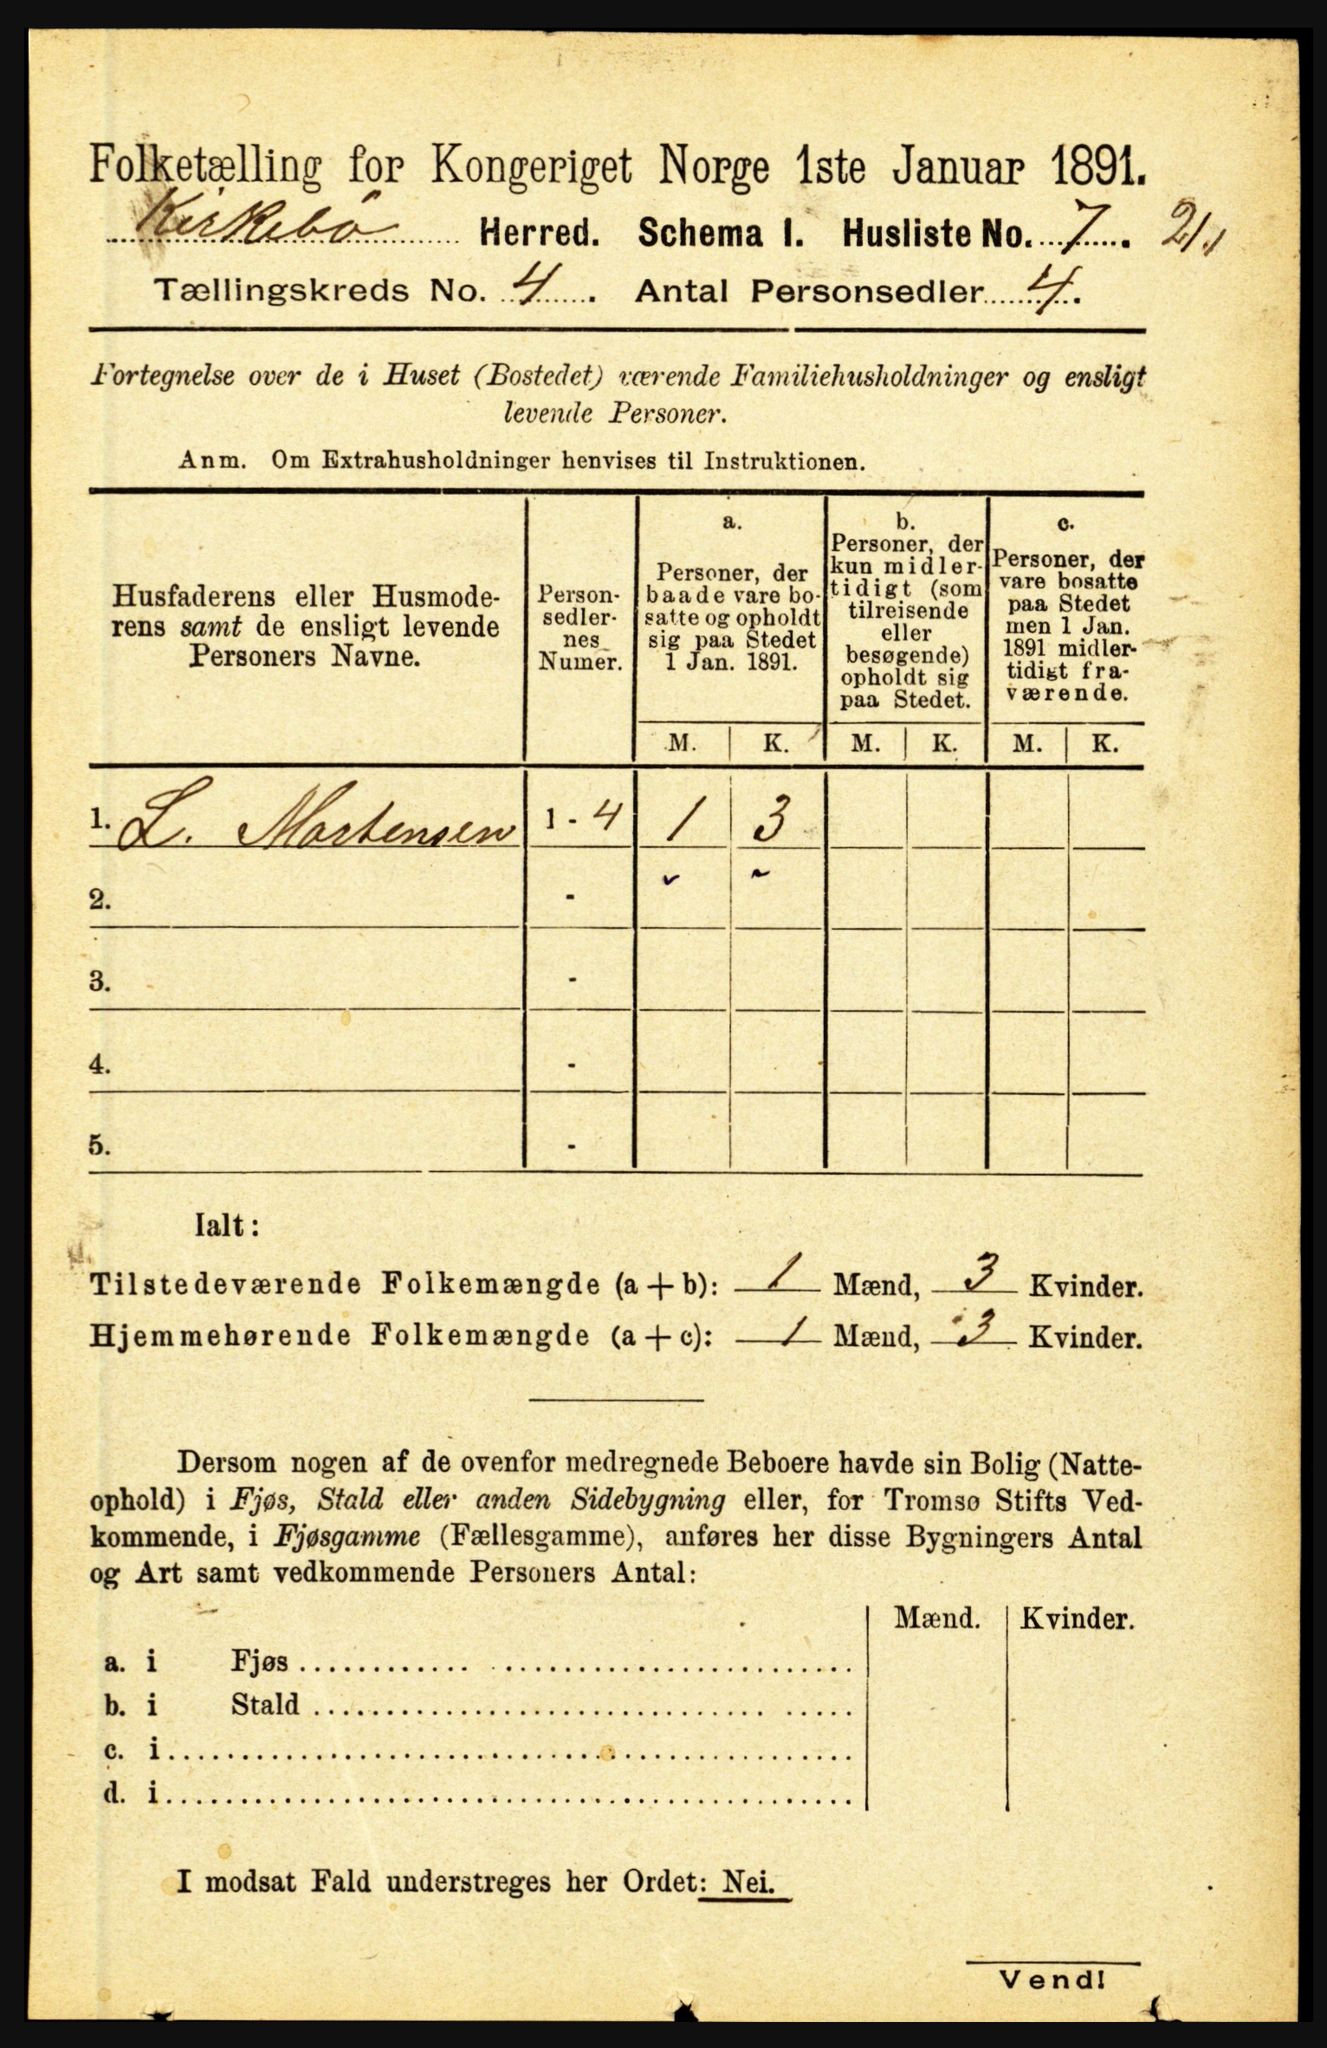 Folketælling for Kongeriget Norge 1ste Januar 1891.
Kirkebö Herred. Schema I. Husliste No. 7. 21.
Tællingskreds No. 4. Antal Personsedler 4.
Fortegnelse over de i Huset (Bostedet) værende Familiehusholdninger og ensligt
levende Personer.
Anm. Om Extrahusholdninger henvises til Instruktionen.
Husfaderens eller Husmode-
rens samt de ensligt levende
Personers Navne.
Person-
sedler-
nes
Numer.
a.
Personer, der
baade vare bo-
satte og opholdt
sig paa Stedet
1 Jan. 1891.
b.
Personer, der
kun midler-
tidigt (som
tilreisende
eller
besøgende)
opholdt sig
paa Stedet.
c.
Personer, der
vare bosatte
paa Stedet
men 1 Jan.
1891 midler-
tidigt fra-
værende.
M. K. M. K. M. K.
1. L. Mortensen 1 - 4 1 3
2. -
3. -
4. -
5. -
Ialt:
Tilstedeværende Folkemængde (a + b): 1 Mænd, 3 Kvinder.
Hjemmehørende Folkemængde (a + c): 1 Mænd, 3 Kvinder.
Dersom nogen af de ovenfor medregnede Beboere havde sin Bolig (Natte-
ophold) i Fjøs, Stald eller anden Sidebygning eller, for Tromsø Stifts Ved-
kommende, i Fjøsgamme (Fællesgamme), anføres her disse Bygningers Antal
og Art samt vedkommende Personers Antal:
Mænd. Kvinder.
a. i Fjøs
b. i Stald
c. i
d. i
I modsat Fald understreges her Ordet: Nei.
Vend!